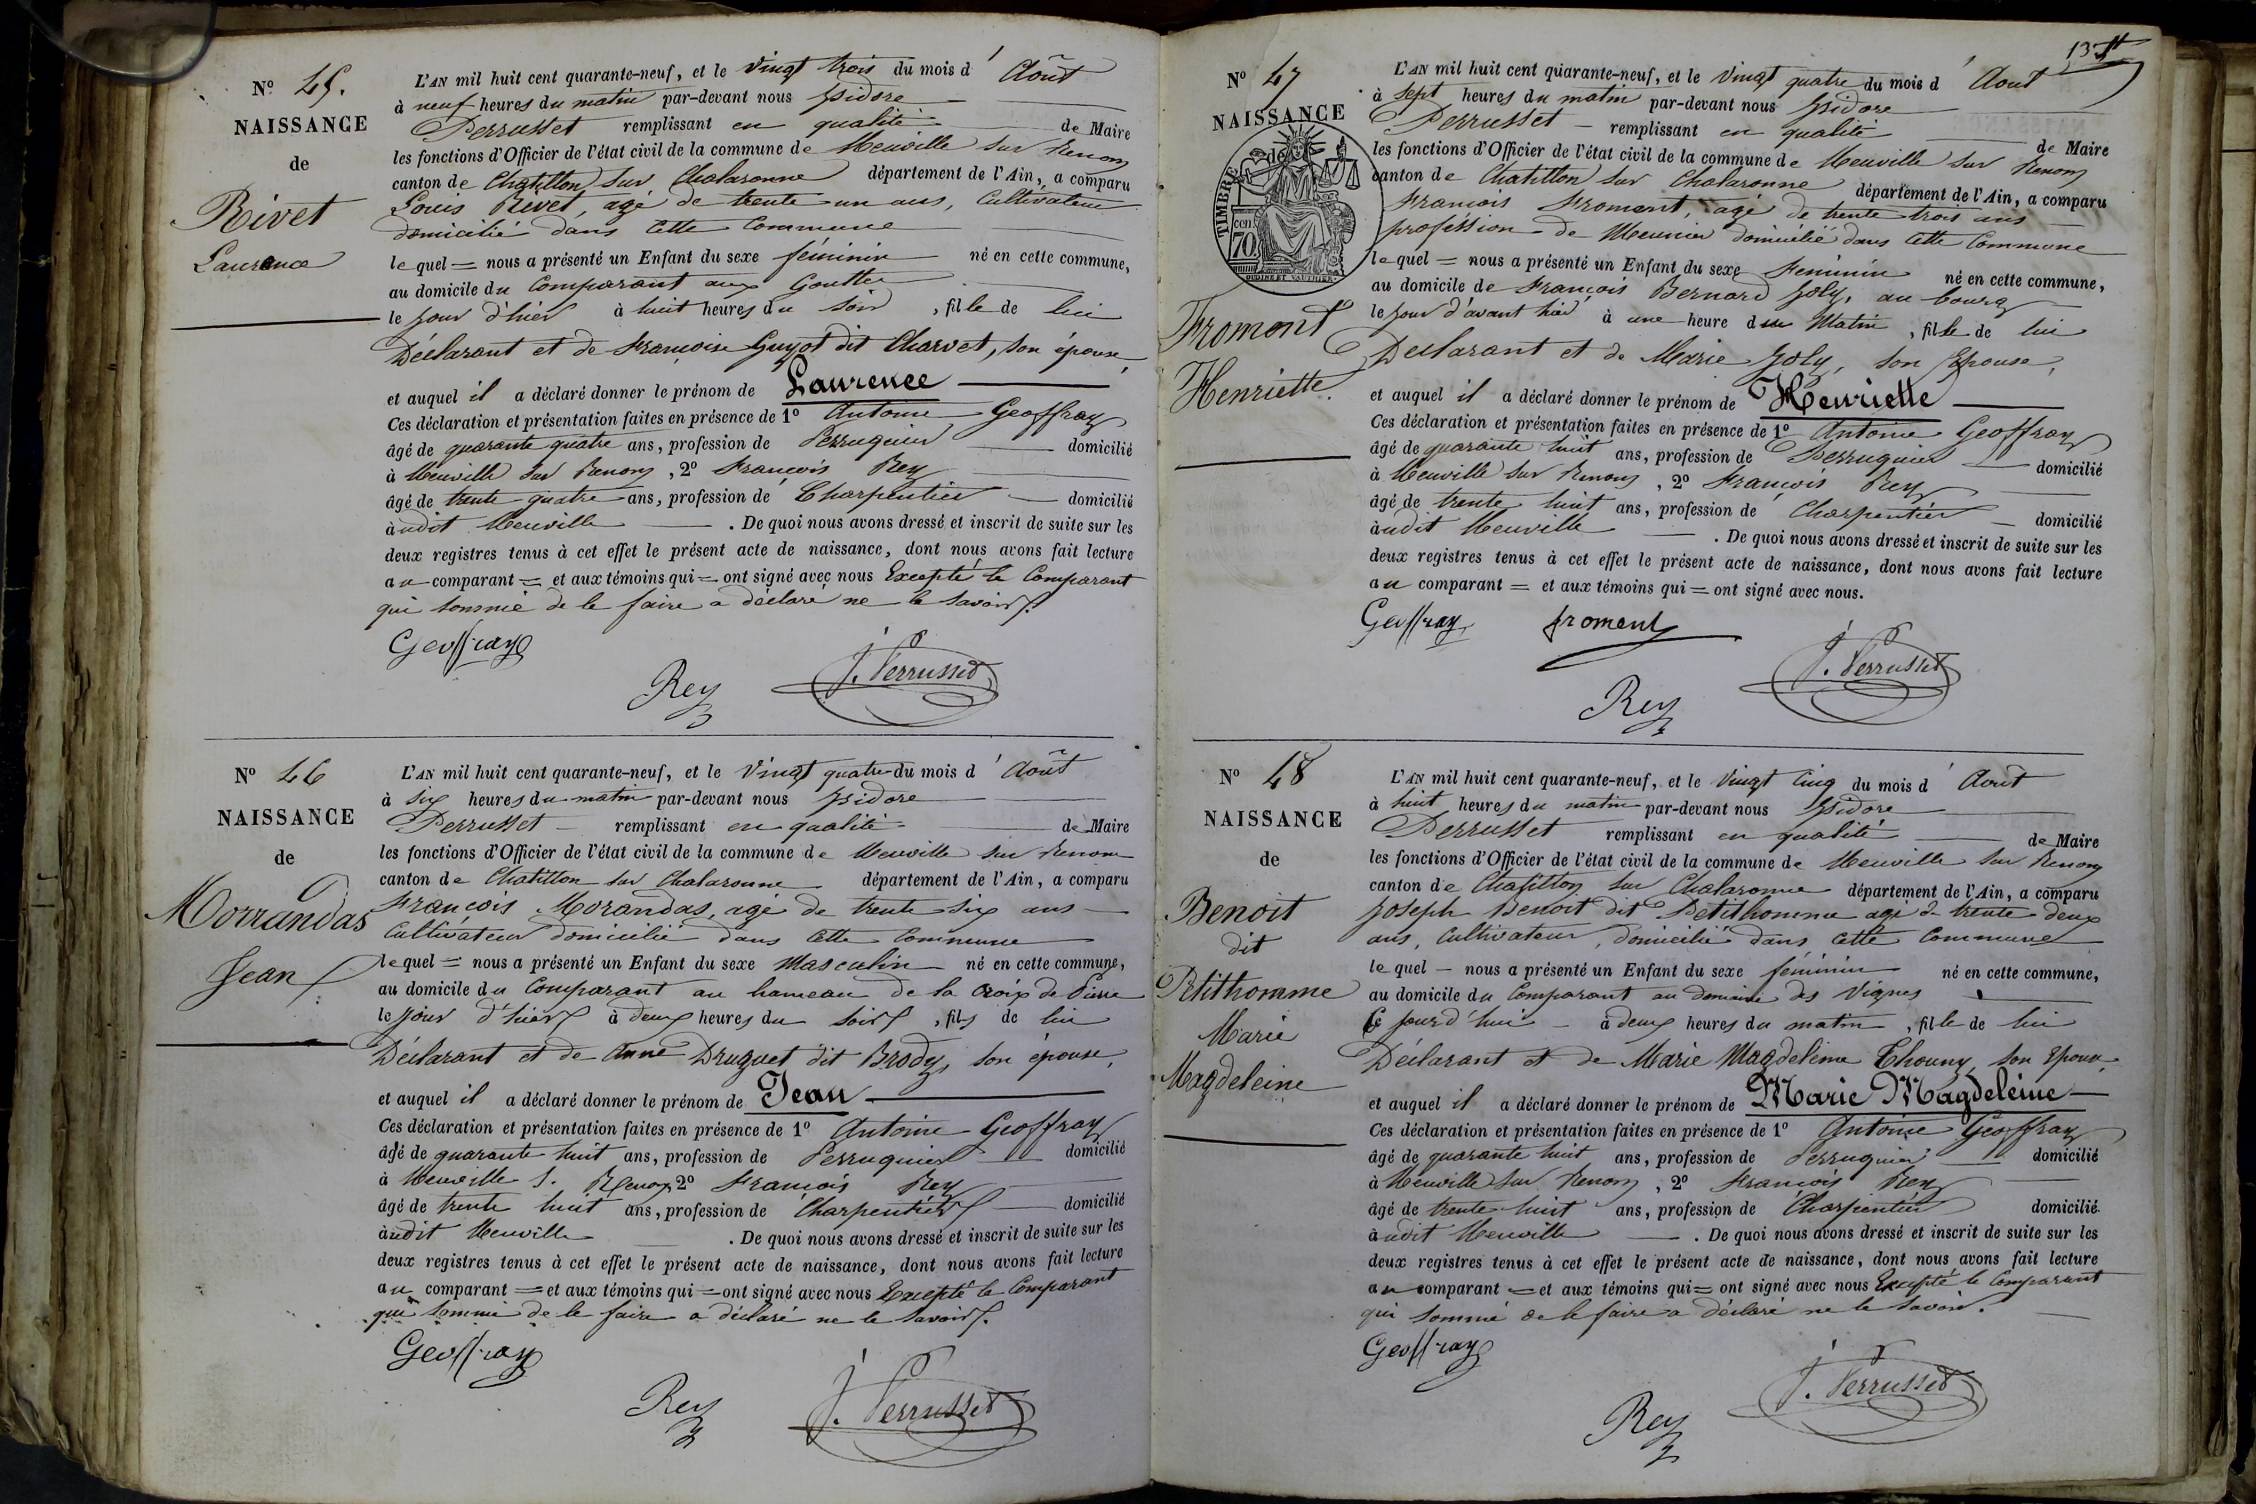 Nº 45.
NAISSANCE
de
Rivet
Laurence
L'AN mil huit cent quarante-neuf, et le vingt trois du mois d' Août
à neuf heures du matin par-devant nous Isidore
Perrusset remplissant en qualité de Maire
les fonctions d'Officier de l'état civil de la commune de Neuville sur Renom
canton de Chatillon sur Chalaronne département de l'Ain, a comparu
Louis Rivet, agé de trente un ans, Cultivateur
domicilié dans cette Commune
le quel = nous a présenté un Enfant du sexe féminin né en cette commune,
au domicile du Comparant aux Gouttes
le jour d'hier à huit heures du soir, fille de lui
Déclarant et de Françoise Guyot dit Charvet, son épouse,
et auquel il a déclaré donner le prénom de Laurence
Ces déclaration et présentation faites en présence de 1º Antoine Geoffray
âgé de quarante quatre ans, profession de Perruquier domicilié
à Neuville sur Renom, 2º François Rey
âgé de trente quatre ans, profession de Charpentier domicilié
à udit Neuville. De quoi nous avons dressé et inscrit de suite sur les
deux registres tenus à cet effet le présent acte de naissance, dont nous avons fait lecture
au comparant = et aux témoins qui = ont signé avec nous Excepté le Comparant
qui sommé de le faire a déclaré ne le savoir.
Geoffray
Rey
J. Perrusset
Nº 46
NAISSANCE
de
Morrandas
Jean
L'AN mil huit cent quarante-neuf, et le vingt quatre du mois d' Août
à six heures du matin par-devant nous Isidore
Perrusset remplissant en qualité de Maire
les fonctions d'Officier de l'état civil de la commune de Neuville sur Renom
canton de Chatillon sur Chalaronne département de l'Ain, a comparu
François Morandas, agé de trente six ans
Cultivateur domicilié dans cette Commune
le quel = nous a présenté un Enfant du sexe Masculin né en cette commune,
au domicile du Comparant au hameau de la Croix de Pierre
le jour d'hier à deux heures du soir, fils de lui
Déclarant et de Anne Druguet dit Brody, son épouse,
et auquel il a déclaré donner le prénom de Jean
Ces déclaration et présentation faites en présence de 1º Antoine Geoffray
âgé de quarante huit ans, profession de Perruquier domicilié
à Neuville S. Renom, 2º François Rey
âgé de trente huit ans, profession de Charpentier domicilié
à udit Neuville. De quoi nous avons dressé et inscrit de suite sur les
deux registres tenus à cet effet le présent acte de naissance, dont nous avons fait lecture
au comparant = et aux témoins qui = ont signé avec nous Excepté le Comparant
qui sommé de le faire a déclaré ne le savoir.
Geoffray
Rey
J. Perrusset
Nº 47
NAISSANCE
de
TIMBRE
70 cen
OUDINE ET VAUTHIER
Fromont
Henriette.
L'AN mil huit cent quarante-neuf, et le vingt quatre du mois d' Aout
à sept heures du matin par-devant nous Isidore
Perrusset remplissant en qualité de Maire
les fonctions d'Officier de l'état civil de la commune de Neuville sur Renom
canton de Chatillon sur Chalaronne département de l'Ain, a comparu
François Fromont, agé de trente trois ans
proféssion de Meunier domicilié dans cette Commune
le quel = nous a présenté un Enfant du sexe Féminin né en cette commune,
au domicile de François Bernard Joly, au bourg
le jour d'avant hier à une heure du Matin, fille de lui
Déclarant et de Marie Joly, son Epouse,
et auquel il a déclaré donner le prénom de Henriette
Ces déclaration et présentation faites en présence de 1º Antoine Geoffray
âgé de quarante huit ans, profession de Perruquier domicilié
à Neuville sur Renom, 2º François Rey
âgé de trente huit ans, profession de Charpentier domicilié
à udit Neuville. De quoi nous avons dressé et inscrit de suite sur les
deux registres tenus à cet effet le présent acte de naissance, dont nous avons fait lecture
au comparant = et aux témoins qui = ont signé avec nous.
Geoffray
fromont
Rey
J. Perrusset
Nº 48
NAISSANCE
de
Benoit
dit
Petithomme
Marie
Magdeleine
L'AN mil huit cent quarante-neuf, et le vingt cinq du mois d' Août
à huit heures du matin par-devant nous Isidore
Perrusset remplissant en qualité de Maire
les fonctions d'Officier de l'état civil de la commune de Neuville sur Renom
canton de Chatillon sur Chalaronne département de l'Ain, a comparu
Joseph Benoit dit Petithomme agé de trente deux
ans, Cultivateur, domicilié dans cette Commune
le quel — nous a présenté un Enfant du sexe féminin né en cette commune,
au domicile du Comparant au domaine des Vignes
Ce jourd'hui à deux heures du matin, fille de lui
Déclarant et de Marie Magdeleine Thouny, son Epouse,
et auquel il a déclaré donner le prénom de Marie Magdeleine
Ces déclaration et présentation faites en présence de 1º Antoine Geoffray
âgé de quarante huit ans, profession de Perruquier domicilié
à Neuville sur Renom, 2º François Rey
âgé de trente huit ans, profession de Charpentier domicilié
à udit Neuville. De quoi nous avons dressé et inscrit de suite sur les
deux registres tenus à cet effet le présent acte de naissance, dont nous avons fait lecture
au comparant = et aux témoins qui = ont signé avec nous Excepté le Comparant
qui sommé de le faire a déclaré ne le savoir.
Geoffray
Rey
J. Perrusset